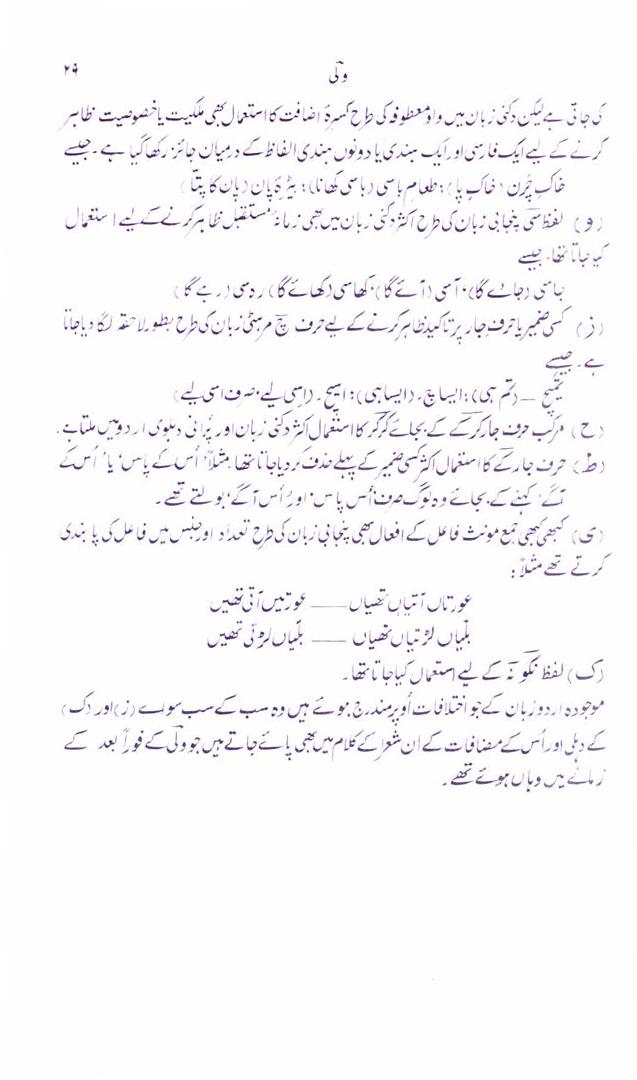 ولی ۲۹
کی جاتی ہے لیکن دکنی زبان میں واو معطوفہ کی طرح کسرۂ اضافت کا استعمال بھی ملکیت یا خصوصیت ظاہر
کرنے کے لیے ایک فارسی اور ایک ہندی یا دونوں ہندی الفاظ کے درمیان جائز رکھا گیا ہے۔ جیسے
خاکِ چرن (خاکِ پا)؛ طعامِ باسی (باسی کھانا)؛ بیڑۂ پان (پان کا پتا)
(و) لفظ سی پنجابی زبان کی طرح اکثر دکنی زبان میں بھی زمانۂ مستقبل ظاہر کرنے کے لیے استعمال
کیا جاتا تھا۔ جیسے
جاسی (جاے گا)، آسی (آئے گا)، کھاسی (کھائے گا) رہ سی (رہے گا)
(ز) کسی ضمیر یا حرفِ جار پر تاکید ظاہر کرنے کے لیے حرف چ مرہٹی زبان کی طرح بطور لاحقہ لگا دیا جاتا
ہے۔ جیسے
تمیچ — (تم ہی)؛ ایساچ۔ (ایسا ہی)؛ اسیچ۔ (اسی لیے، صرف اسی لیے)
(ح) مرکب حرف جار کرکے کے بجائے کرکر کا استعمال اکثر دکنی زبان اور پرانی دہلوی اردو میں ملتا ہے۔
(ط) حرف جار کے کا استعمال اکثر کسی ضمیر کے پہلے حذف کر دیا جاتا تھا۔ مثلاً ’اُس کے پاس‘ یا ’اُس کے
آگے‘ کہنے کے بجائے وہ لوگ صرف ’اُس پاس‘ اور ’اُس آگے‘ بولتے تھے۔
(ی) کبھی کبھی جمع مونث فاعل کے افعال بھی پنجابی زبان کی طرح تعداد اور جنس میں فاعل کی پابندی
کرتے تھے مثلاً:
عورتاں آتیاں تھیاں —— عورتیں آتی تھیں
بلّیاں لڑتیاں تھیاں —— بلّیاں لڑتی تھیں
(ک) لفظ نکو نہ کے لیے استعمال کیا جاتا تھا۔
موجودہ اردو زبان کے جو اختلافات اُوپر مندرج ہوئے ہیں وہ سب کے سب سواے (ز) اور (ک)
کے دہلی اور اُس کے مضافات کے ان شعرا کے کلام میں بھی پائے جاتے ہیں جو ولی کے فوراً بعد کے
زمانے میں وہاں ہوئے تھے۔